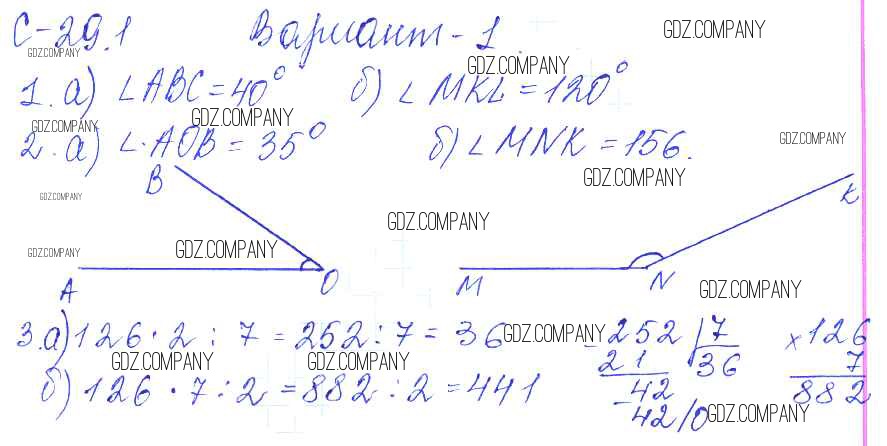 С-29.1 Вариант-1
GDZ.COMPANY
GDZ.COMPANY
GDZ.COMPANY
1. а) ∠ABC = 40° б) ∠MKL = 120°
GDZ.COMPANY
GDZ.COMPANY
GDZ.COMPANY
2. а) ∠AOB = 35° б) ∠MNK = 156.
B
GDZ.COMPANY
GDZ.COMPANY
K
GDZ.COMPANY
GDZ.COMPANY
GDZ.COMPANY
A O M N
GDZ.COMPANY
3. а) 126 · 2 : 7 = 252 : 7 = 36 GDZ.COMPANY - 252 | 7 × 126
GDZ.COMPANY GDZ.COMPANY 21 36 7
б) 126 · 7 : 2 = 882 : 2 = 441 - 42 882
42 / 0 GDZ.COMPANY